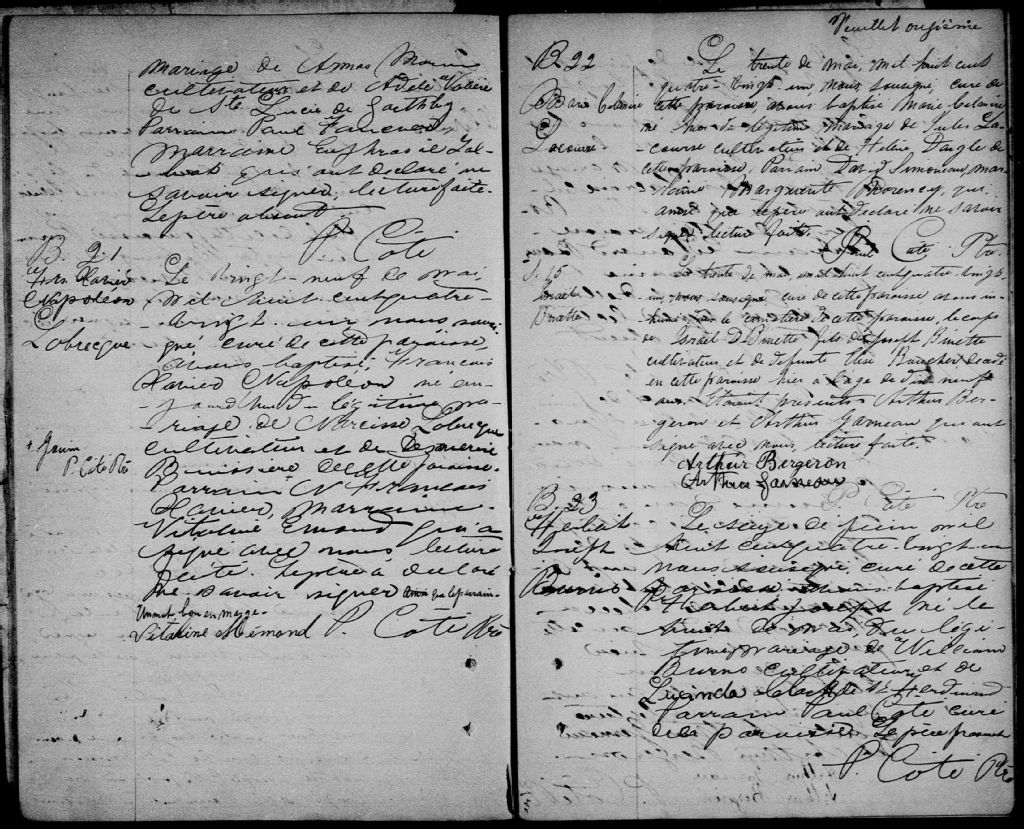 mariage de Amas Morin
cultivateur et de Adèle Valière
de Ste Lucie de
Parrain Paul Faucher
Marraine Euphrasie
qui ont déclaré ne
savoir signer, lecture faite.
Le père absent
P. Côté
B. 21
Frs Xavier
Napoléon
Labrecque
Le vingt-neuf de mai
mil huit cent quatre-
vingt un nous soussi-
gné curé de cette paroisse
avons baptisé, François
Xavier Napoléon né au-
jourdhui du légitime ma-
riage de Narcisse Labrecque
cultivateur et de
Bussière de cette paroisse.
Parrain François
Xavier, marraine
Vitaline Émond qui a
signé avec nous lecture
faite. Le père a déclaré
ne savoir signer ainsi que le parrain.
P. Côté Ptre
Un mot bon en marge.
Vitaline Émond P. Côté Ptre
Feuillet onzième
B. 22
Marie
Lacourse
Le trente de mai, mil huit cent
quatre-vingt-un nous soussigné, curé de
cette paroisse avons baptisé Marie
né hier du légitime mariage de Jules La-
course cultivateur et de Daigle de
cette paroisse, Parrain David Simoneau, mar-
raine Marguerite qui
ainsi que le père ont déclaré ne savoir
signer lecture faite.
Paul Côté Ptre.
S. 15
Israël
Binette
Le trente de mai mil huit cent quatre-vingt-
un, nous soussigné curé de cette paroisse avons in-
humé dans le cimetière de cette paroisse, le corps
de Israël D. Binette fils de Joseph Binette
cultivateur et de défunte Elise Boucher décédé
en cette paroisse hier à l'age de dix neuf
ans. Etaient présents Arthur Ber-
geron et Arthur Garneau qui ont
signé avec nous, lecture faite.
Arthur Bergeron
Arthur Garneau
P. Côté Ptre
B. 23
Herbert
Joseph
Burns
Le seize de juin mil
huit cent quatre-vingt-un
nous soussigné, curé de cette
paroisse avons baptisé
Herbert Joseph né le
huit de mai, du légi-
time mariage de William
Burns cultivateur et de
Lucinda de St Ferdinand
Parrain Paul Côté curé
de la paroisse. Le père présent
P. Côté Ptre